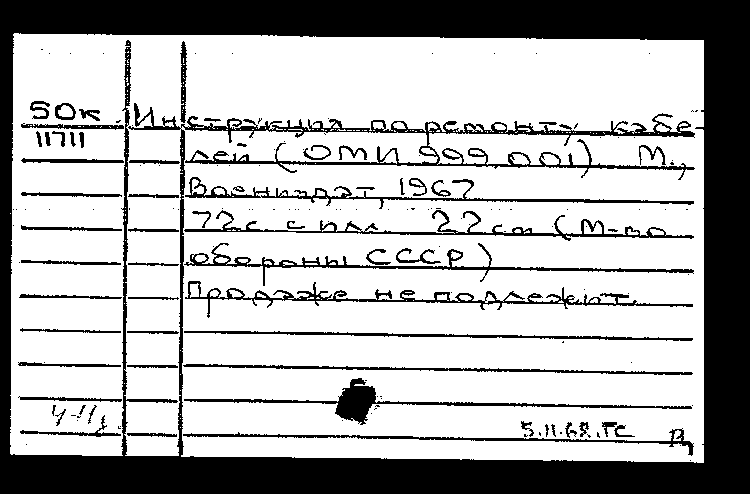 50к Инструкция по ремонту кабе-
11711 лей (ОМИ 999 001) М.,
Воениздат, 1967
72с. с илл. 22 см (М-во
обороны СССР)
Продаже не подлежит.
5.11.68.ГС